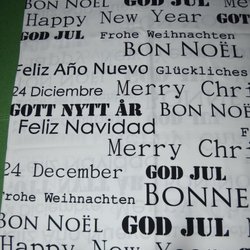 BON NOËL GOD JUL
Happy New Year GOD
GOD JUL Frohe Weihnachten
BON NOËL
Feliz Año Nuevo Glückliches
24 Diciembre Merry Chri
GOTT NYTT ÅR BON NOËL
Feliz Navidad
Merry Chri
24 December GOD JUL
Frohe Weihnachten BONNE
BON NOËL GOD JUL
Happy New Year GOD